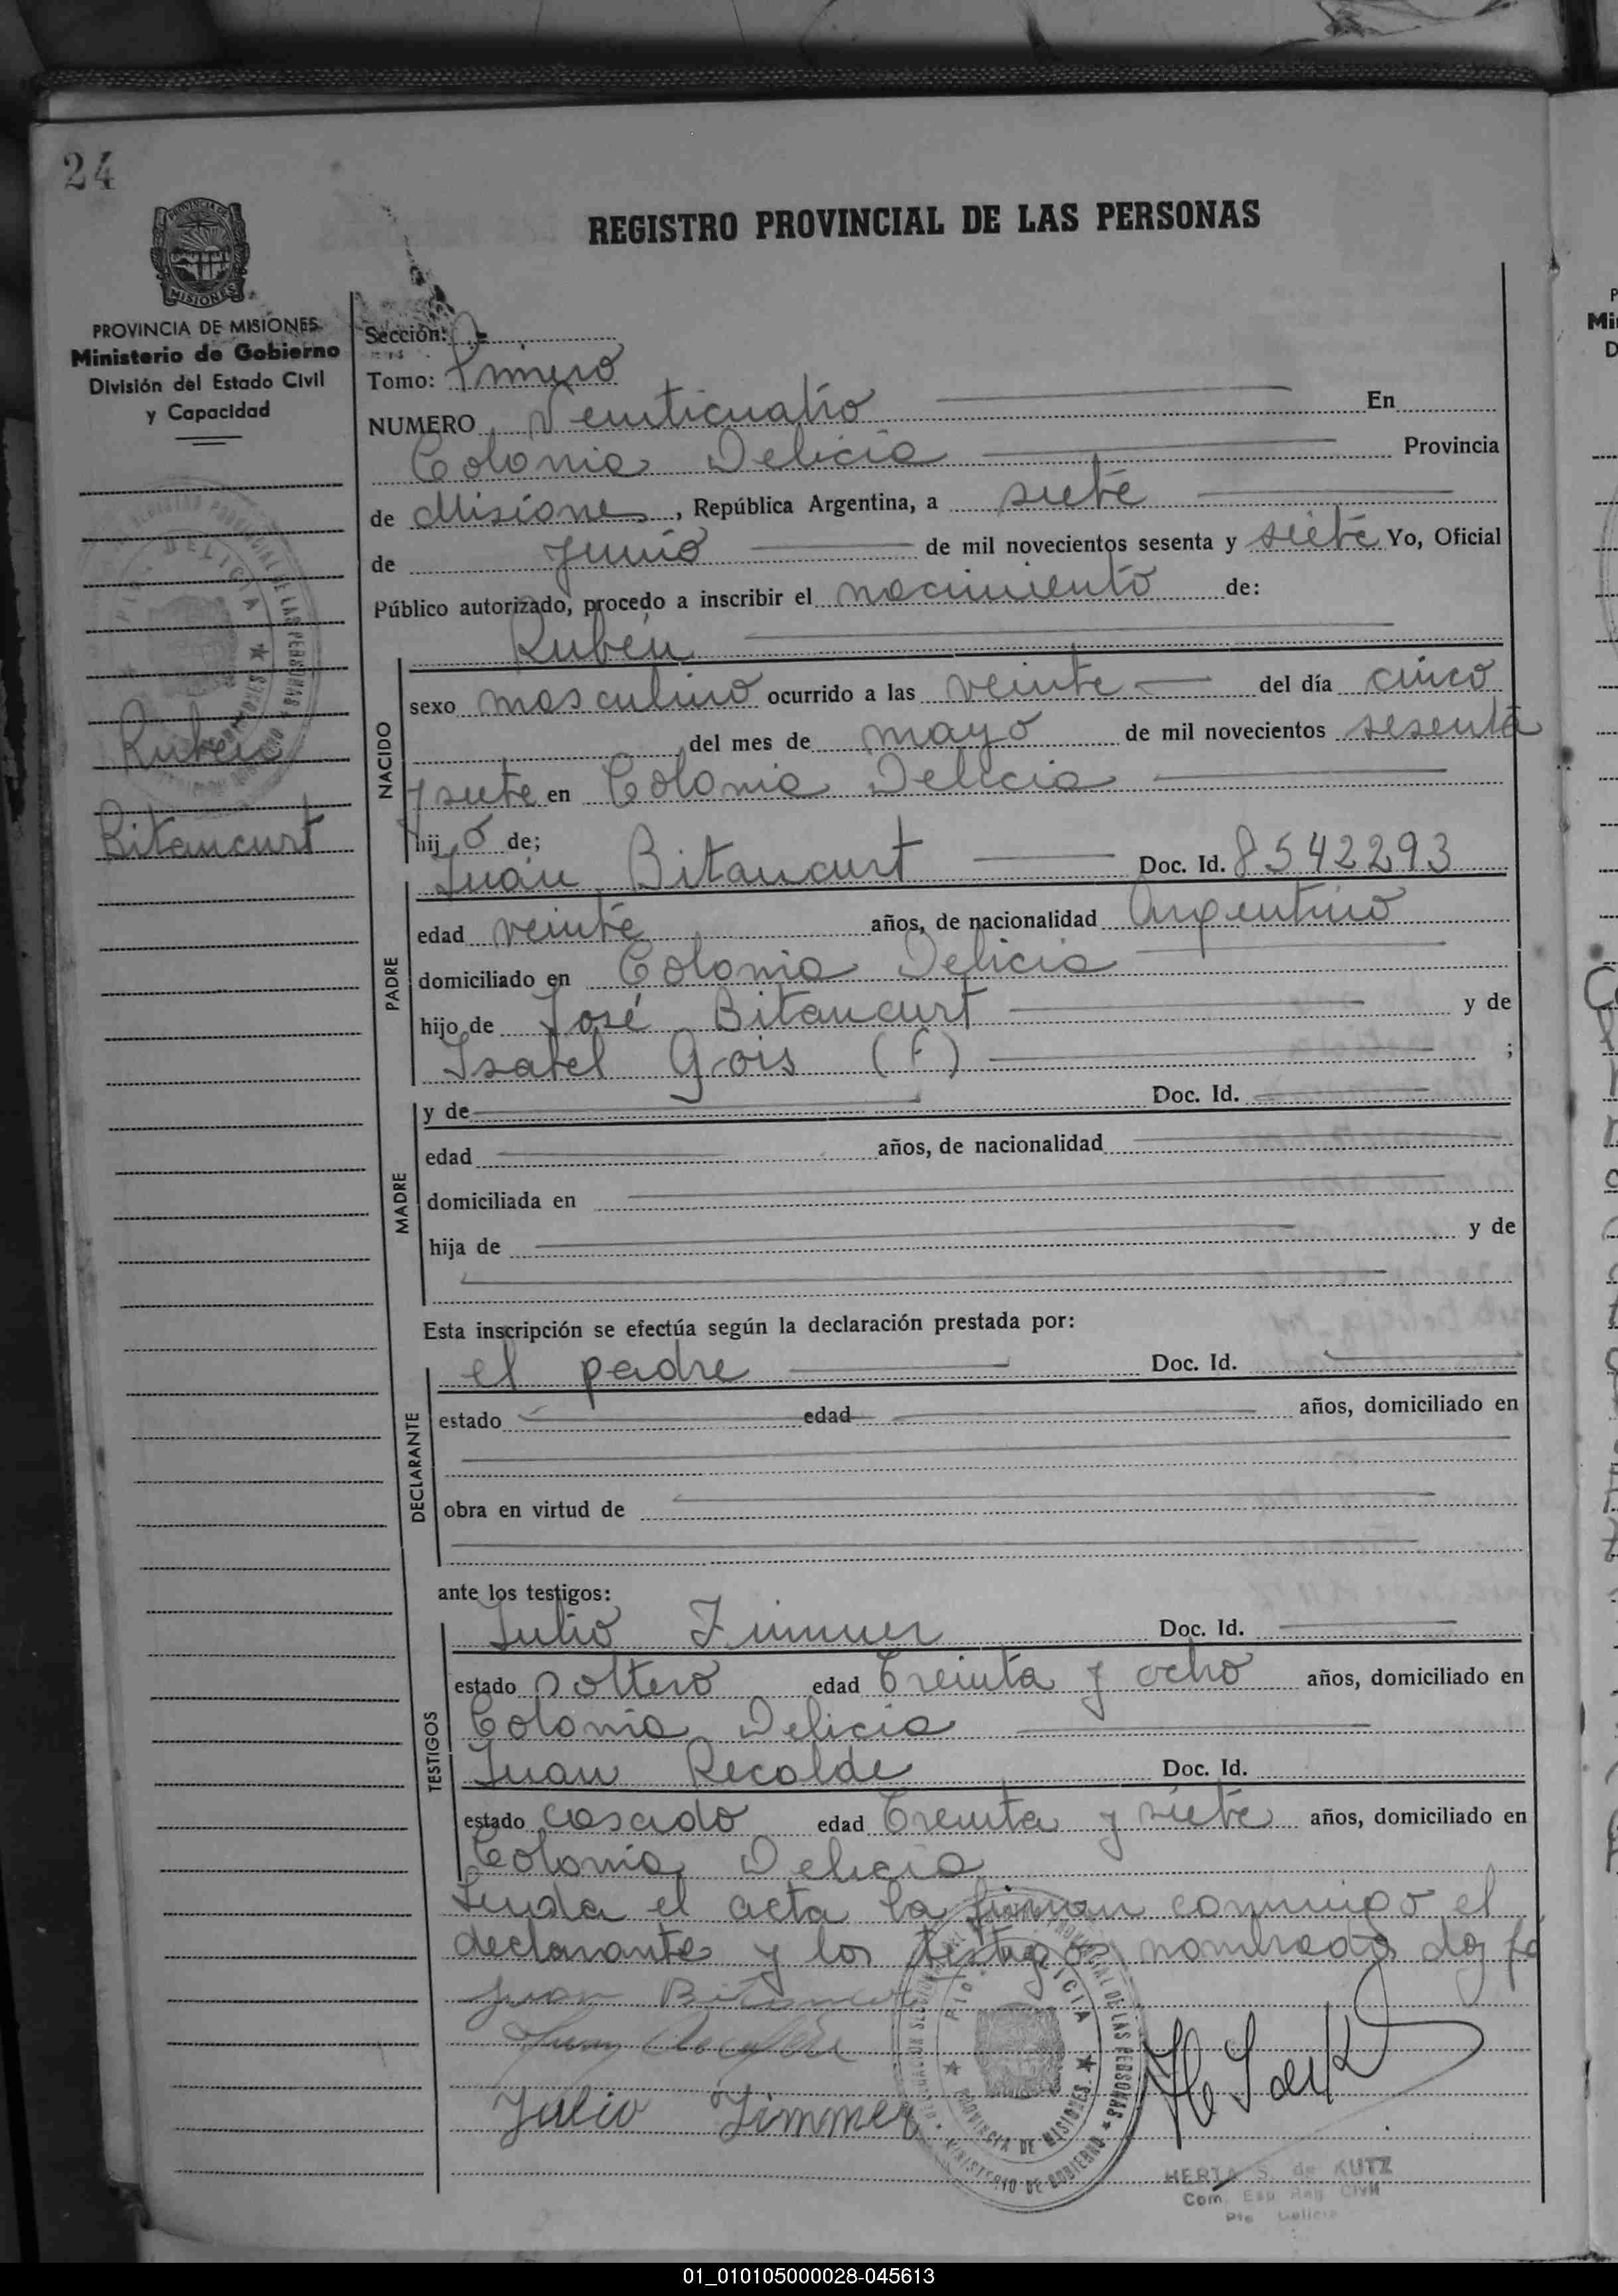 24
REGISTRO PROVINCIAL DE LAS PERSONAS
PROVINCIA DE MISIONES
Ministerio de Gobierno
División del Estado Civil
y Capacidad
Rubén
Bitancurt
Sección:
Tomo: Primero
NUMERO Veinticuatro En
Colonia Delicia Provincia
de Misiones, República Argentina, a siete
de Junio de mil novecientos sesenta y siete Yo, Oficial
Público autorizado, procedo a inscribir el nacimiento de:
Rubén
NACIDO
sexo masculino ocurrido a las veinte del día cinco
del mes de mayo de mil novecientos sesenta
y siete en Colonia Delicia
hijo de;
Juan Bitancurt Doc. Id. 8542293
PADRE
edad veinte años, de nacionalidad Argentino
domiciliado en Colonia Delicia
hijo de José Bitancurt y de
Isabel Gois (f) ;
MADRE
y de Doc. Id.
edad años, de nacionalidad
domiciliada en
hija de y de
Esta inscripción se efectúa según la declaración prestada por:
DECLARANTE
el padre Doc. Id.
estado edad años, domiciliado en
obra en virtud de
ante los testigos:
TESTIGOS
Julio Zimmer Doc. Id.
estado soltero edad Treinta y ocho años, domiciliado en
Colonia Delicia
Juan Recolde Doc. Id.
estado casado edad Treinta y siete años, domiciliado en
Colonia Delicia
Leida el acta la firman conmigo el
declarante y los testigos nombrados doy fe
Juan Bitancurt
Julio Zimmer
PROVINCIA DE MISIONES
MINISTERIO DE GOBIERNO
HERTA S. de KUTZ
Com. Esp Reg Civil
Pto Delicia
01_010105000028-045613